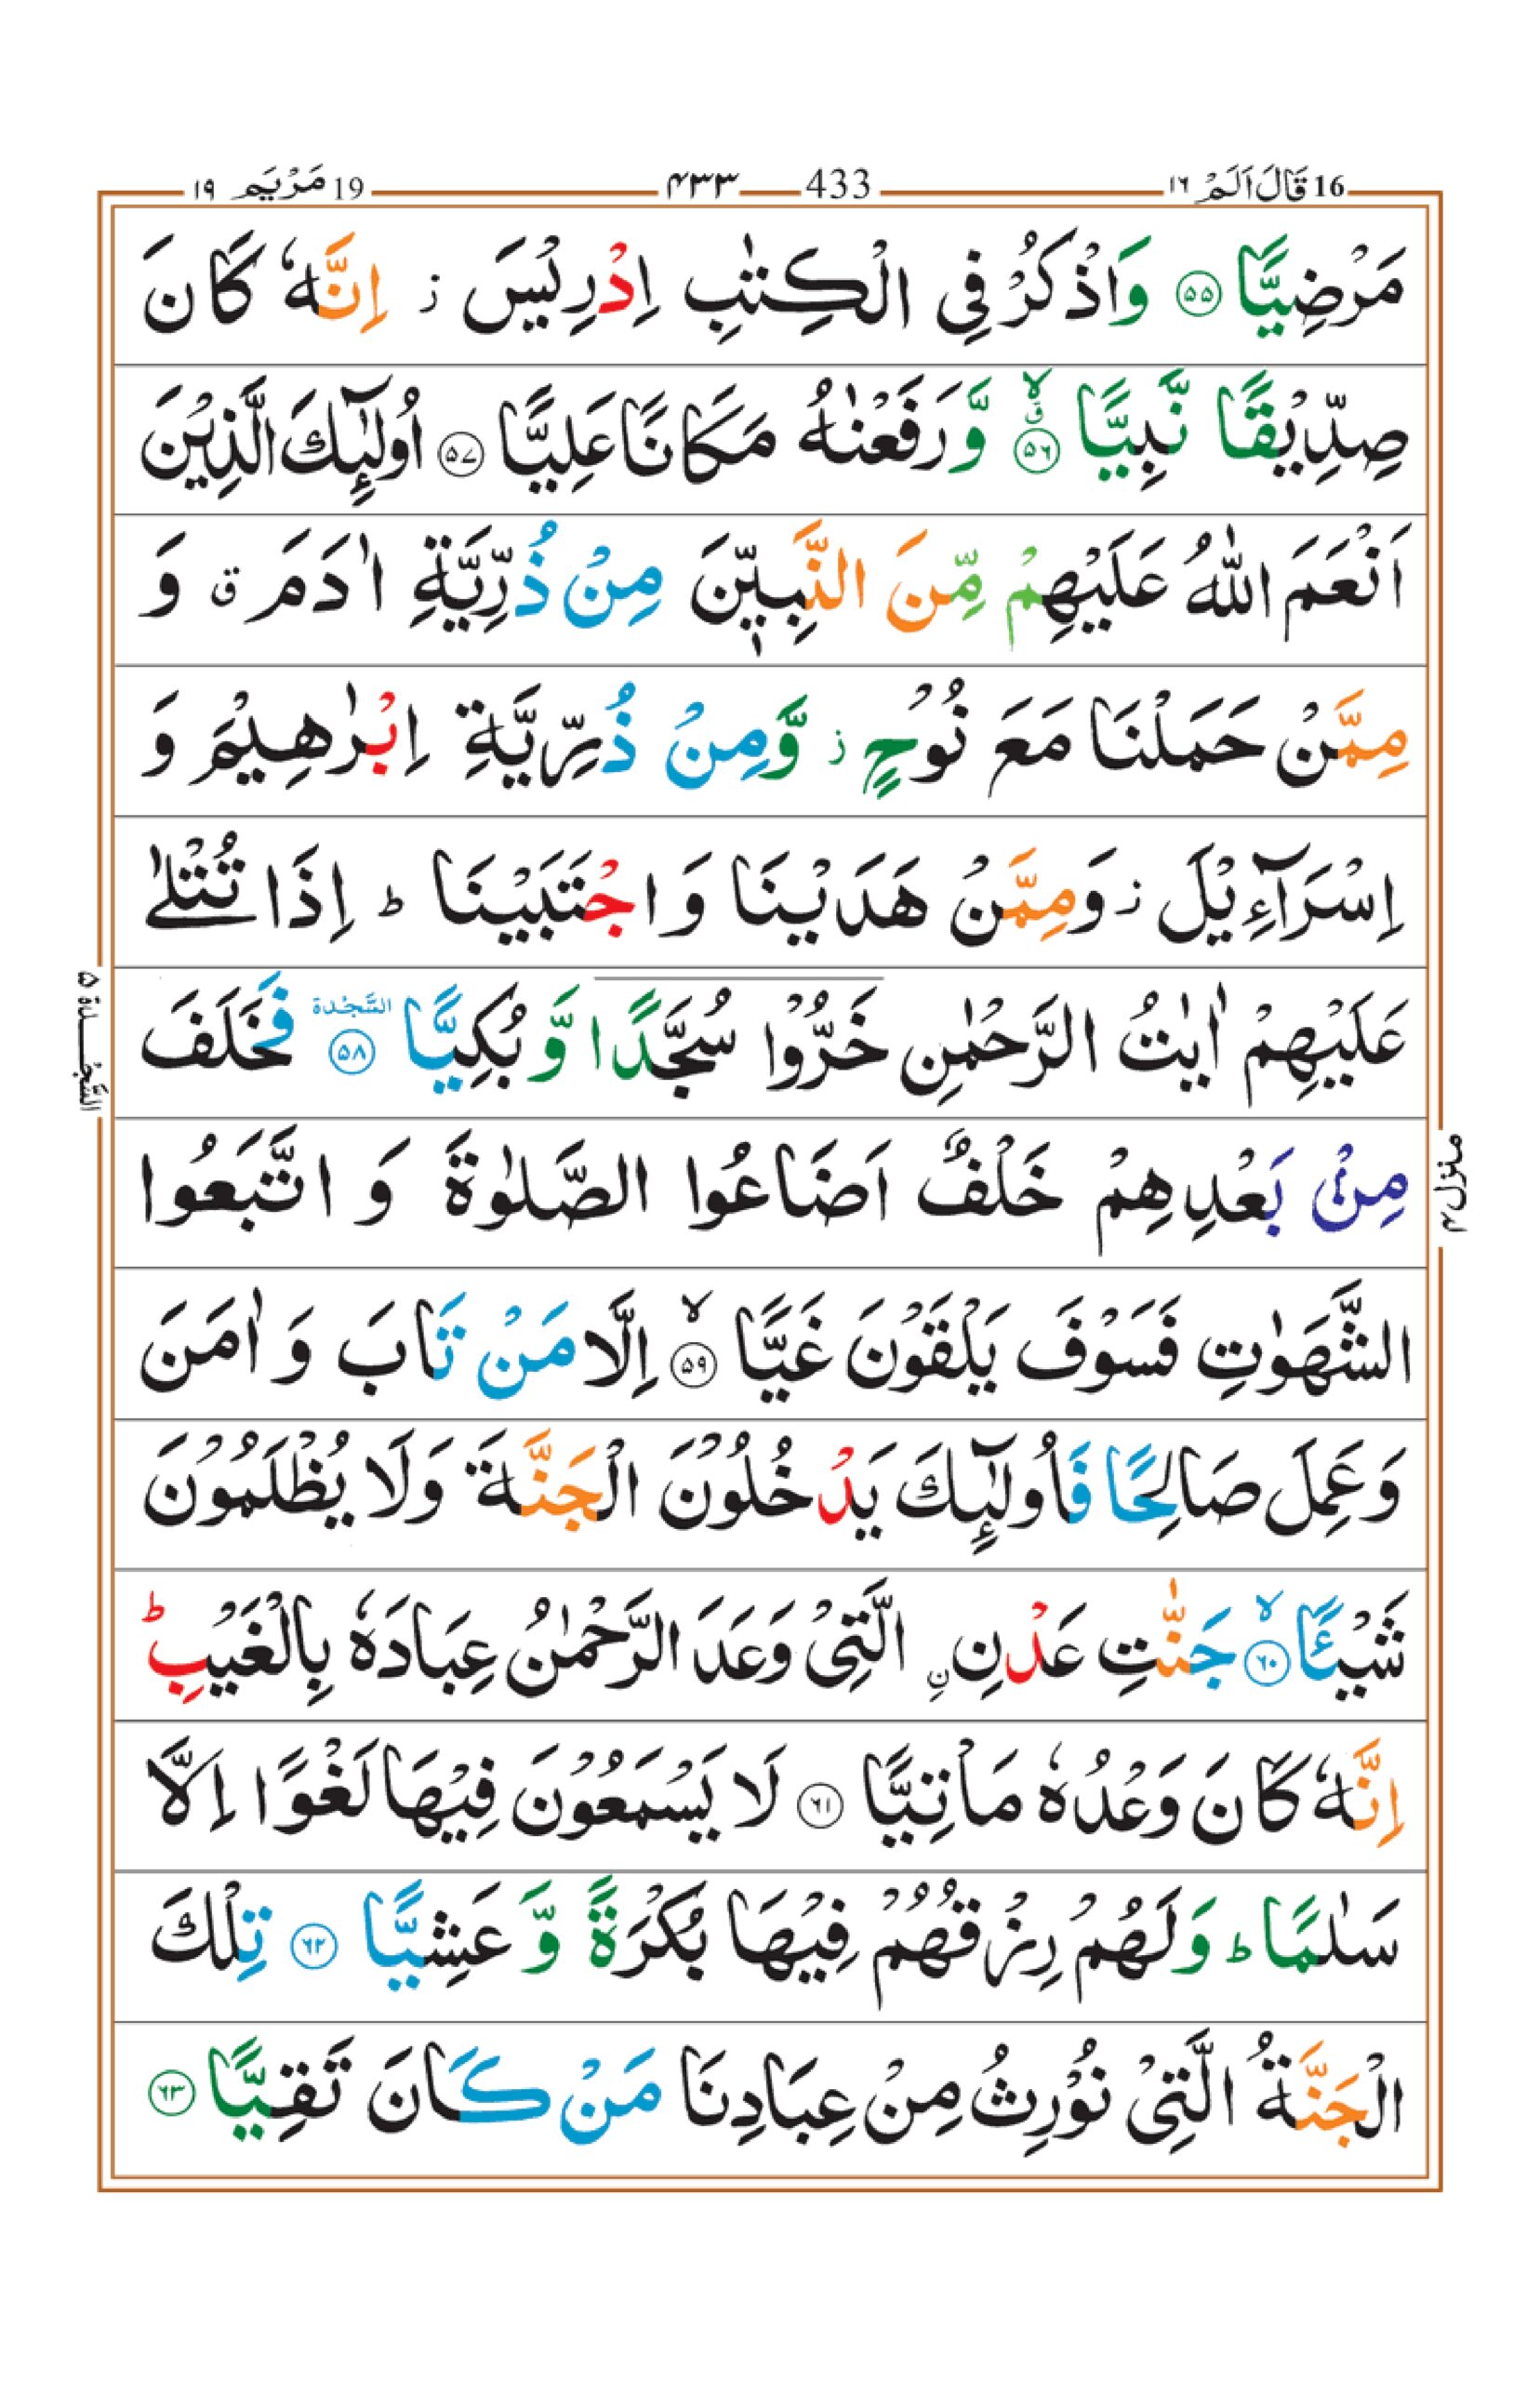 16 قَالَ اَلَمْ ١٦ 433 ۴۳۳ 19 مَرْيَم ١٩
مَرْضِيًّا ۵۵ وَاذْكُرْ فِي الْكِتٰبِ اِدْرِيْسَ ز اِنَّهٗ كَانَ
صِدِّيْقًا نَّبِيًّا ۵۶ ق لا وَّرَفَعْنٰهُ مَكَانًا عَلِيًّا ۵۷ اُولٰٓئِكَ الَّذِيْنَ
اَنْعَمَ اللّٰهُ عَلَيْهِمْ مِّنَ النَّبِيّٖنَ مِنْ ذُرِّيَّةِ اٰدَمَ ق وَ
مِمَّنْ حَمَلْنَا مَعَ نُوْحٍ ز وَّمِنْ ذُرِّيَّةِ اِبْرٰهِيْمَ وَ
اِسْرَآءِيْلَ ز وَمِمَّنْ هَدَيْنَا وَاجْتَبَيْنَا ط اِذَا تُتْلٰى
عَلَيْهِمْ اٰيٰتُ الرَّحْمٰنِ خَرُّوْا سُجَّدًا وَّبُكِيًّا ۵۸ السَّجْدة فَخَلَفَ
السَّجْدة ۵
مِنْۢ بَعْدِهِمْ خَلْفٌ اَضَاعُوا الصَّلٰوةَ وَاتَّبَعُوا
منزل ۴
الشَّهَوٰتِ فَسَوْفَ يَلْقَوْنَ غَيًّا ۵۹ لا اِلَّا مَنْ تَابَ وَاٰمَنَ
وَعَمِلَ صَالِحًا فَاُولٰٓئِكَ يَدْخُلُوْنَ الْجَنَّةَ وَلَا يُظْلَمُوْنَ
شَيْئًا ۶۰ لا جَنّٰتِ عَدْنِ نِ الَّتِيْ وَعَدَ الرَّحْمٰنُ عِبَادَهٗ بِالْغَيْبِ ط
اِنَّهٗ كَانَ وَعْدُهٗ مَاْتِيًّا ۶۱ لَا يَسْمَعُوْنَ فِيْهَا لَغْوًا اِلَّا
سَلٰمًا ط وَلَهُمْ رِزْقُهُمْ فِيْهَا بُكْرَةً وَّعَشِيًّا ۶۲ تِلْكَ
الْجَنَّةُ الَّتِيْ نُوْرِثُ مِنْ عِبَادِنَا مَنْ كَانَ تَقِيًّا ۶۳